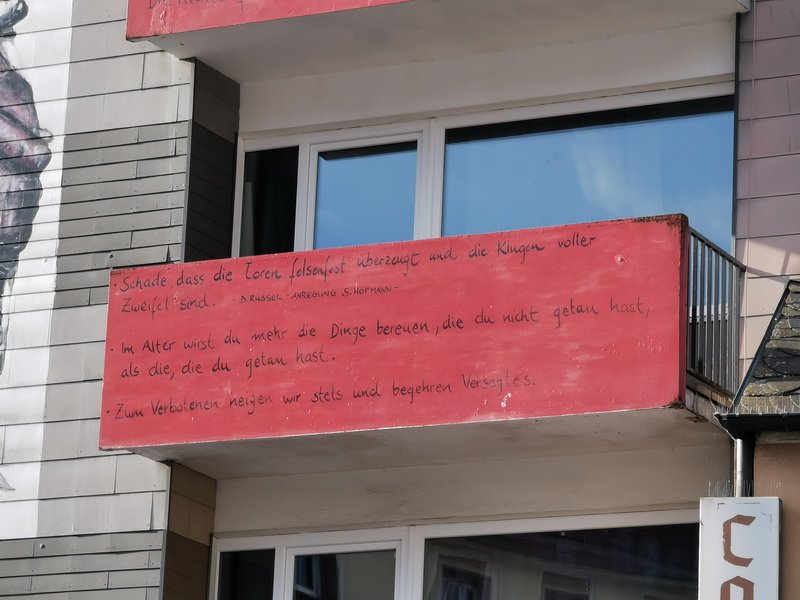 · Schade, dass die Toren felsenfest überzeugt und die Klugen voller
Zweifel sind. - B. RUSSEL - ANREGUNG S. HOFMANN -
- Im Alter wirst du mehr die Dinge bereuen, die du nicht getan hast,
als die, die du getan hast.
- Zum Verbotenen neigen wir stets und begehren Versagtes.
C